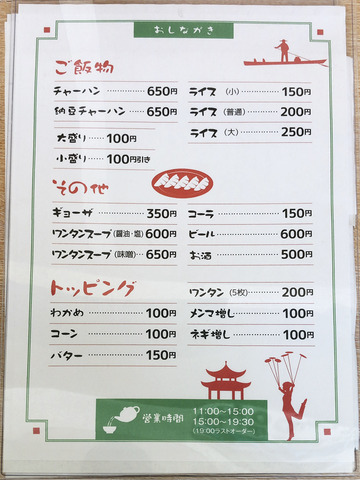 おしながき
ご飯物
チャーハン 650円
納豆チャーハン 650円
大盛り 100円
小盛り 100円引き
ライス (小) 150円
ライス (普通) 200円
ライス (大) 250円
その他
ギョーザ 350円
ワンタンスープ (醤油・塩) 600円
ワンタンスープ (味噌) 650円
コーラ 150円
ビール 600円
お酒 500円
トッピング
わかめ 100円
コーン 100円
バター 150円
ワンタン (5枚) 200円
メンマ増し 100円
ネギ増し 100円
営業時間
11:00～15:00
15:00～19:30
(19:00ラストオーダー)